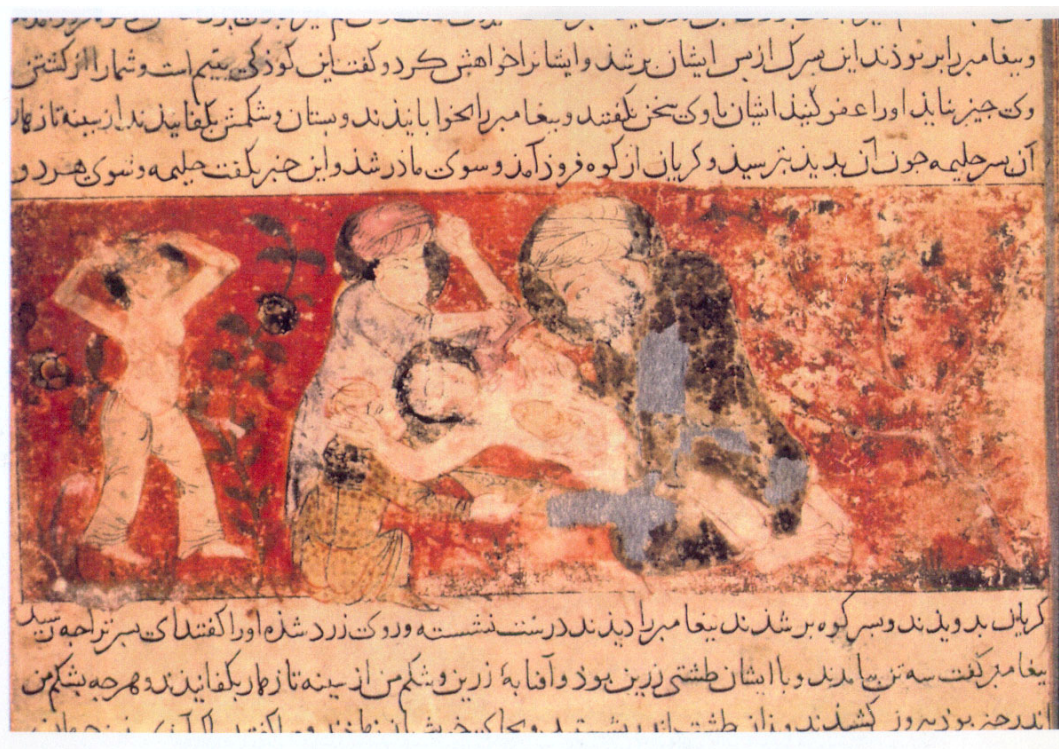 وبیغامبر را ببرذند این بسرک از بس ایشان برشذ و ایشانرا خواهش کرد و کفت این کوذکی یتیم است و شمارا از کشتن
وی جیز نیایذ اورا عفو کنیذ ایشان با وی سخن نکفتند و بیغامبر را بخوابانیذند و ستان و شکمش بکفانیذند از سینه تا زهار
آن بسر حلیمه جون آن بدیذ بترسیذ و کریان از کوه فروذ آمذ و سوی مادر شذ و این خبر بکفت حلیمه و شوی هر دو
کریان بدویذند و بسر کوه برشذند بیغامبر را دیذند درست نشسته و روی زرد شذه اورا کفتند ای بسر ترا جه رسید
بیغامبر کفت سه تن بیامدند و با ایشان طشتی زرین بوذ و آفتابهٔ زرین و شکم من از سینه تا زهار بکفانیذند و هر جه بشکم من
اندر جیز بوذ بیرون کشیذند و دران طشت اندر بشستند